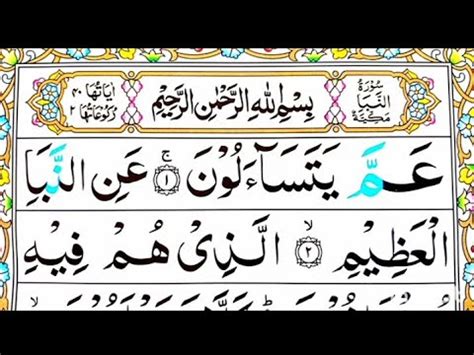 سُوْرَةُ النَّبَاِ مَكِّيَّةٌ
بِسْمِ اللّٰهِ الرَّحْمٰنِ الرَّحِيْمِ
اٰيَاتُهَا ٤٠ رُكُوْعَاتُهَا ٢
عَمَّ يَتَسَآءَلُوْنَ ۚ ١ عَنِ النَّبَاِ
الْعَظِيْمِ ۙ ٢ الَّذِىْ هُمْ فِيْهِ